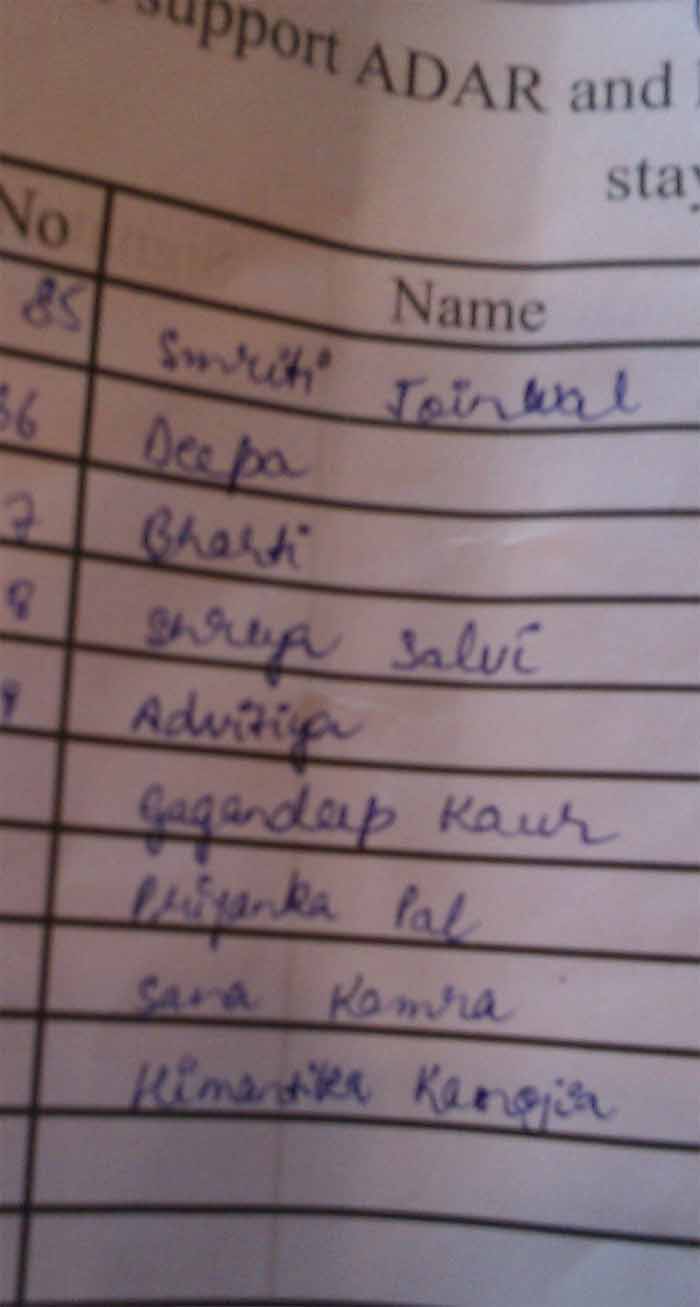 support ADAR and
stay
No Name
85 Smriti Joinwal
86 Deepa
7 Bharti
8 Shreya Salvi
9 Advitiya
Gagandeep Kaur
Priyanka Pal
Sana Kamra
Himantika Kanojia